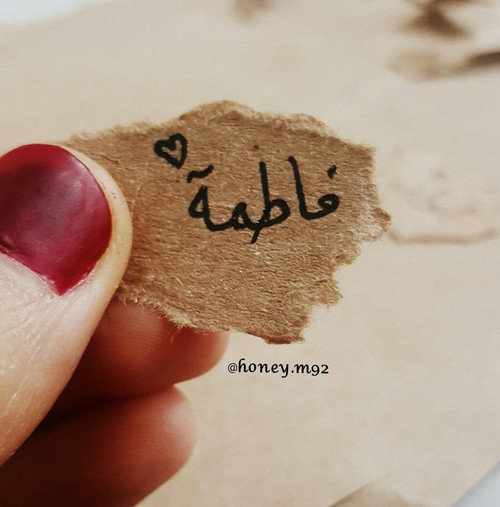 فاطمة
@honey.m92